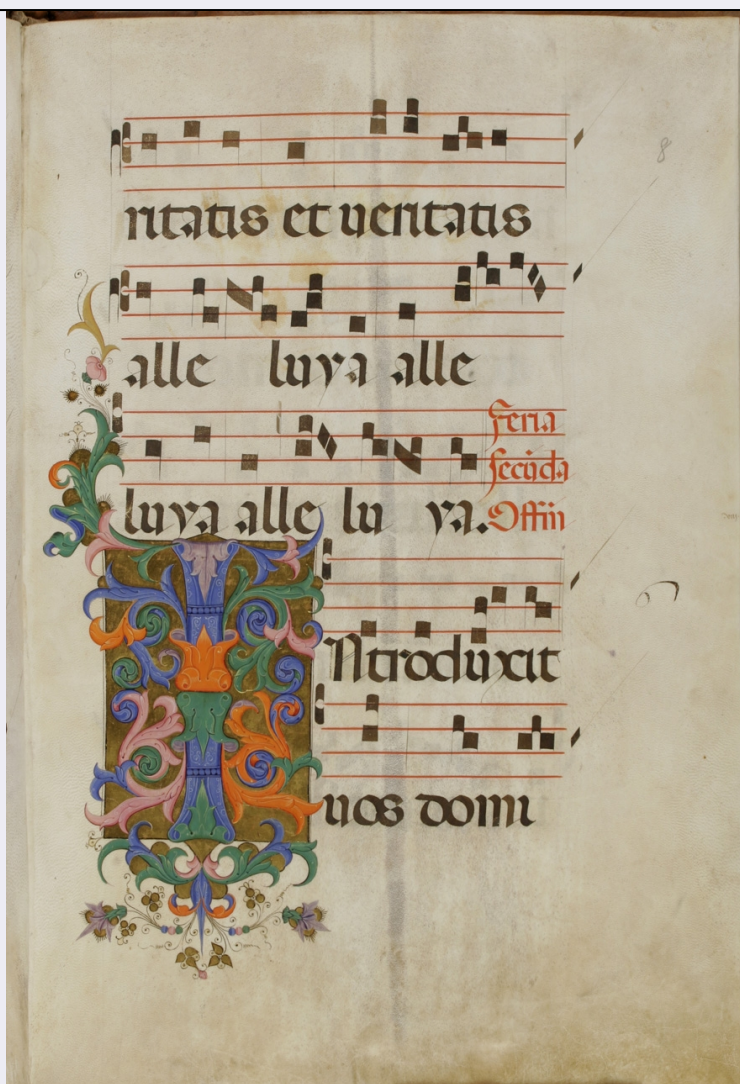 ritatis et ueritatis
alle luya alle
Feria
secūda
luya alle lu ya. Offiū
INtroduxit
uos domi
8